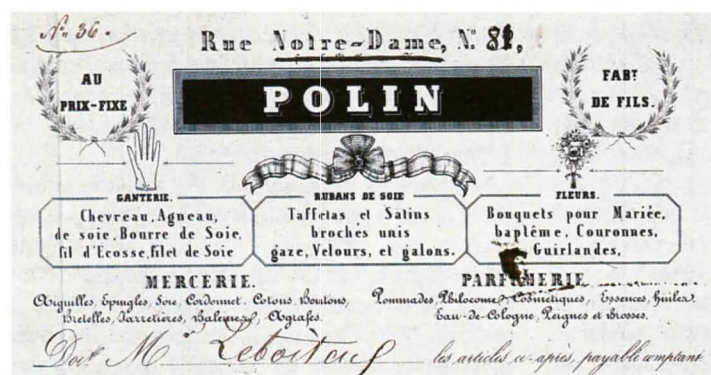 No. 36.
Rue Notre-Dame, No. 81,
AU
PRIX-FIXE
POLIN
FABT.
DE FILS.
GANTERIE.
Chevreau, Agneau,
de soie, Bourre de Soie,
fil d'Ecosse, filet de Soie
RUBANS DE SOIE
Taffetas et Satins
brochés unis
gaze, Velours, et galons.
FLEURS.
Bouquets pour Mariée,
baptême, Couronnes,
Guirlandes,
MERCERIE.
Aiguilles, Epingles, Soie, Cordonnet, Cotons, Boutons,
Bretelles, Jarretières, Baleines, Agrafes.
PARFUMERIE
Pommades, Philocome, Cosmétiques, Essences, Huiles,
Eau-de-Cologne, Peignes et Brosses.
Doit M
les articles ci-après, payable comptant